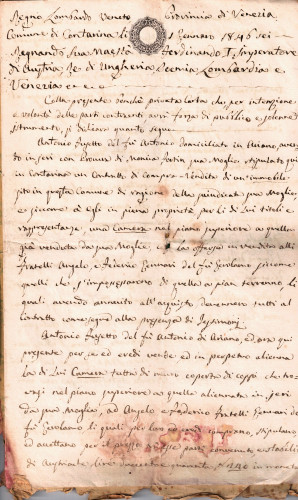 Regno Lombardo Veneto Provincia di Venezia
Comune di Gambarare li Gennaro 1846 sei
Regnando Sua Maestà Ferdinando I. Imperatore
di Austria, Re di Ungheria Boemia, Lombardia e
Venezia e c e c
Colla presente benchè privata carta che per intenzione
e volontà delle parti contraenti avrà forza di pubblico e solenne
istrumento, si dichiara quanto segue
Antonio Fusetto del fu Antonio domiciliato in Oriano, aven-
do jeri con sua Moglie stipulato qui
in un contratto di Compra-Vendita di un immobile
posto in questa Comune di ragione della
e siccome à Egli in piena proprietà per li di Lui titoli e
rappresentanze, una Camera nel piano superiore a quello
già venduto da sua Moglie, la offerse in vendita alli
Fratelli Angelo, e Federico Gennari del fu Gerolamo siccome
quelli che s'impossessarono di quello a pian terreno, li
quali avendo annuito all'acquisto devennero tutti al
contratto come segue alla presenza di Testimonj
Antonio Fusetto del fu Antonio di Oriano, ed ora qui
presente per se ed eredi vende ed in perpetuo aliena
la di Lui Camera tutta di muro coperta di coppi che tro-
vasi nel piano superiore a quello alienato in jeri
da sua Moglie, ad Angelo e Federico Fratelli Gennari del
fu Gerolamo li quali per loro ed eredi comprano, stipulano
ed accettano per il prezzo tra esse parti convenuto e stabilito
di Austriache lire duecento quaranta 240 in moneta